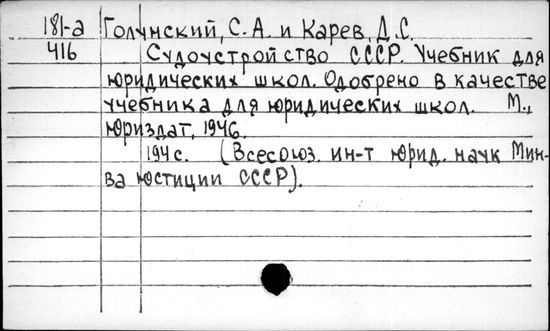 181-а Голунский, С.А. и Карев, Д.С.
416 Судоустройство СССР. Учебник для
юридических школ. Одобрено в качестве
учебника для юридических школ. М.,
Юриздат, 1946.
194 с. (Всесоюз. ин-т юрид. наук Мин-
ва юстиции СССР).